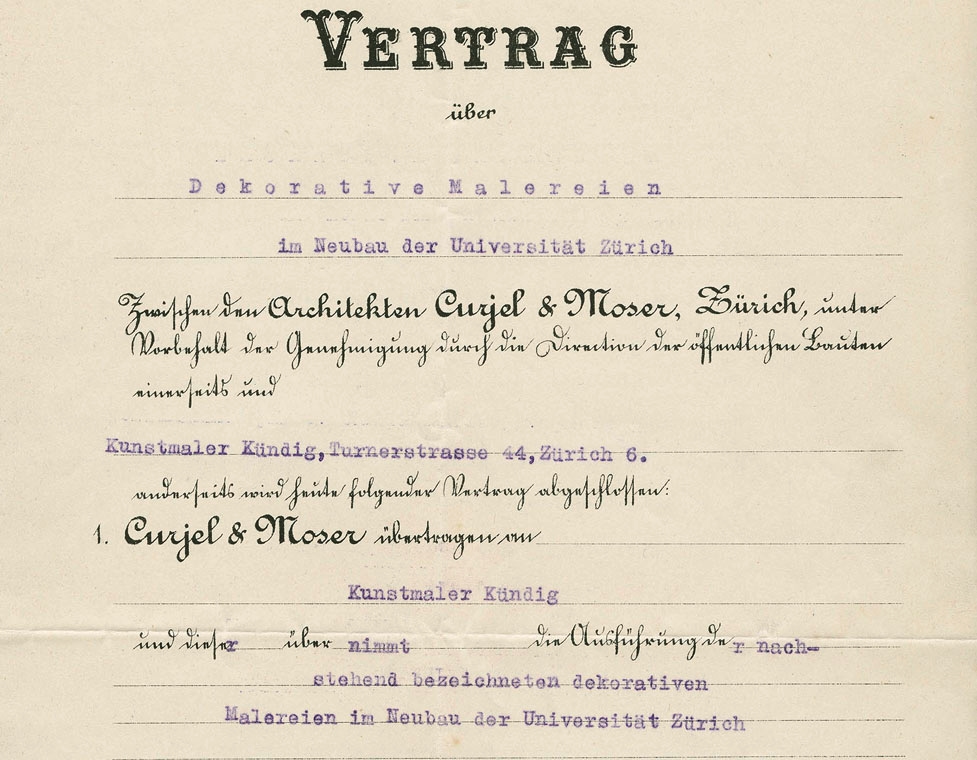 VERTRAG
über
Dekorative Malereien
im Neubau der Universität Zürich
Zwischen den Architekten Curjel & Moser, Zürich, unter
Vorbehalt der Genehmigung durch die Direction der öffentlichen Bauten
einerseits und
Kunstmaler Kündig, Turnerstrasse 44, Zürich 6.
anderseits wird heute folgender Vertrag abgeschlossen:
1. Curjel & Moser übertragen an
Kunstmaler Kündig
und dieser über nimmt die Ausführung der nach-
stehend bezeichneten dekorativen
Malereien im Neubau der Universität Zürich